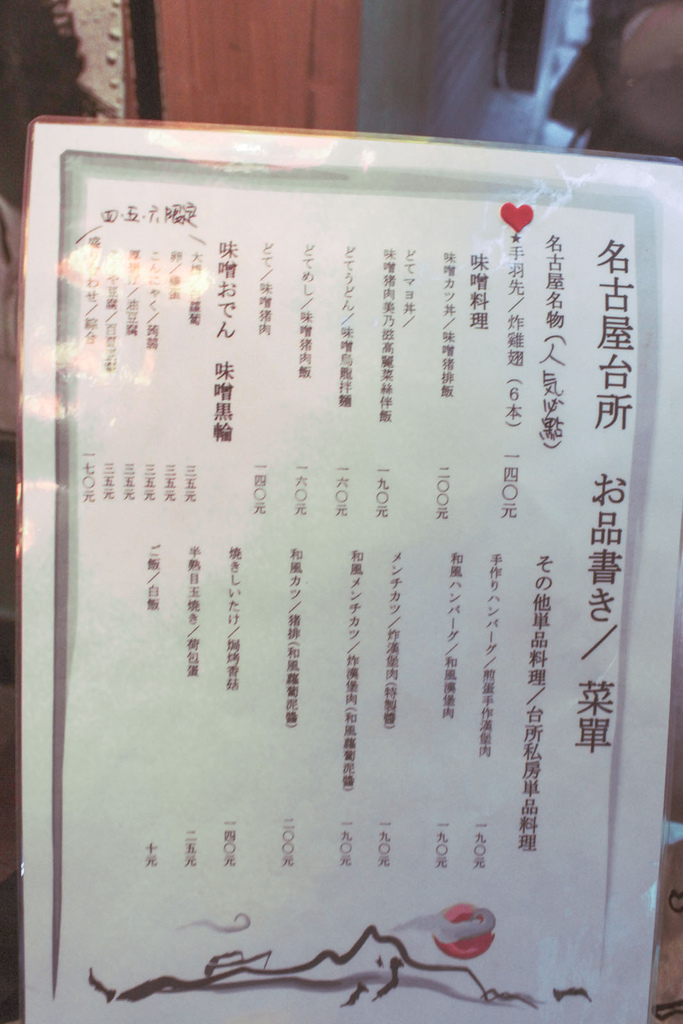 名古屋台所 お品書き/ 菜單
名古屋名物(人気必點)
★手羽先/炸雞翅(6本) 一四〇元
味噌料理
味噌カツ丼/味噌猪排飯 二〇〇元
どてマヨ丼/
味噌猪肉美乃滋高麗菜絲伴飯 一九〇元
どてうどん/味噌烏龍拌麵 一六〇元
どてめし/味噌猪肉飯 一六〇元
どて/味噌猪肉 一四〇元
味噌おでん 味噌黒輪
四.五.六限定
蘿蔔 三五元
卵/ 三五元
こんにゃく/蒟蒻 三五元
油豆腐 三五元
豆腐/百豆 三五元
わせ/綜合 一七〇元
その他単品料理/台所私房単品料理
手作りハンバーグ/煎蛋手作漢堡肉 一九〇元
和風ハンバーグ/和風漢堡肉 一九〇元
メンチカツ/炸漢堡肉(特製醬) 一九〇元
和風メンチカツ/炸漢堡肉(和風蘿蔔泥醬) 一九〇元
和風カツ/猪排(和風蘿蔔泥醬) 二〇〇元
焼きしいたけ/焗烤香菇 一四〇元
半熟目玉焼き/荷包蛋 二五元
ご飯/白飯 十元